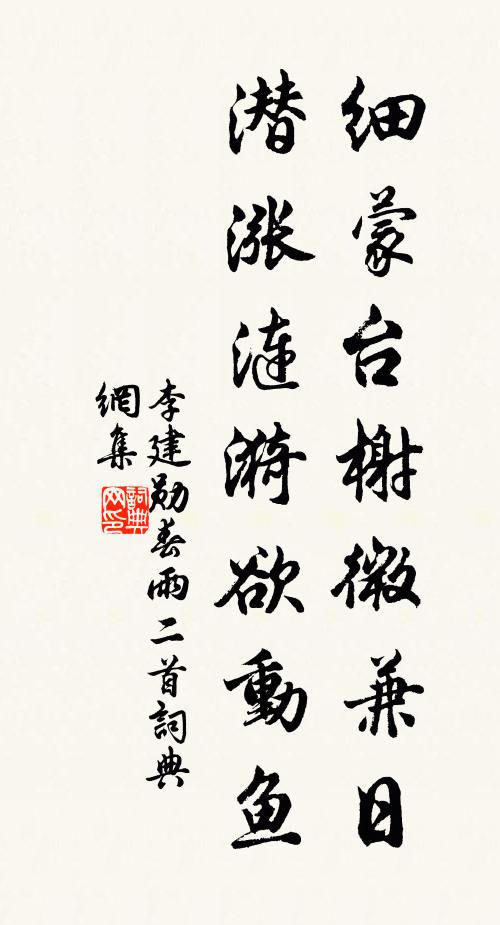 细蒙台榭微兼日
潜涨涟漪欲動鱼
李建勋春雨二首詞典
網集
詞典
网印